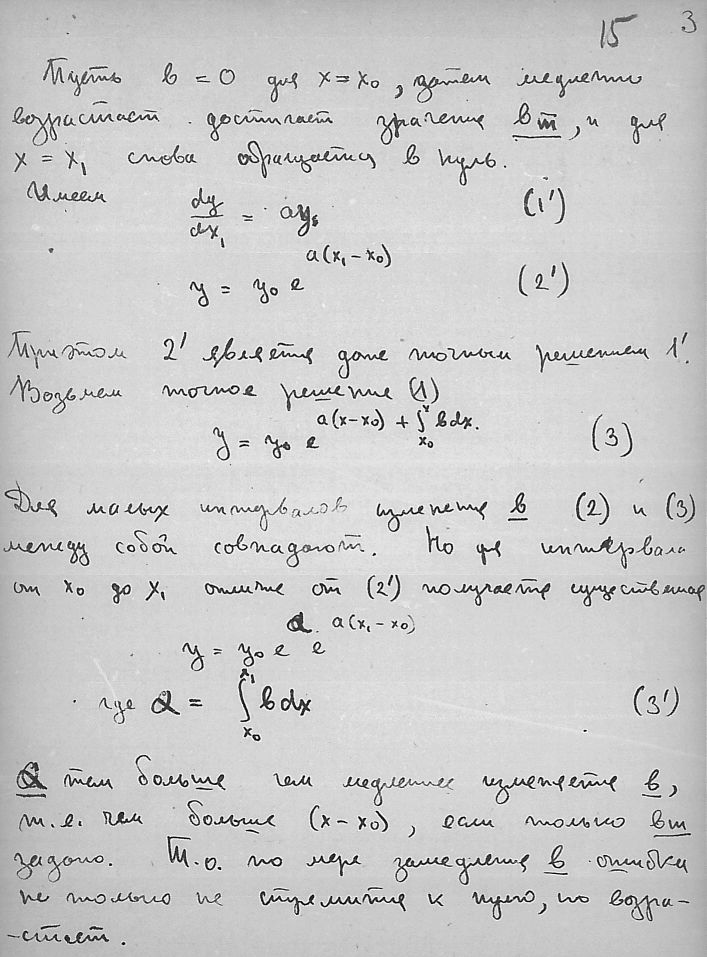 15 3
Пусть b = 0 для x = x₀, затем медленно
возрастает достигает значения bm, и для
x = x₁ снова обращается в нуль.
Имеем dy/dx₁ = ay, (1')
y = y₀ e^{a(x₁ – x₀)} (2')
При этом 2' является даже точным решением 1'.
Возьмем точное решение (1)
y = y₀ e^{a(x–x₀) + ∫_{x₀}^{x} bdx.} (3)
Для малых интервалов изменения b (2) и (3)
между собой совпадают. Но для интервала
от x₀ до x₁ отличие от (2') получается существенное
y = y₀ e^{α} e^{a(x₁ – x₀)}
где α = ∫_{x₀}^{x₁} bdx (3')
α тем больше чем медленнее изменяется b,
т.е. чем больше (x–x₀), если только bm
задано. Т.о. по мере замедления b ошибка
не только не стремится к нулю, но возра-
-стает.